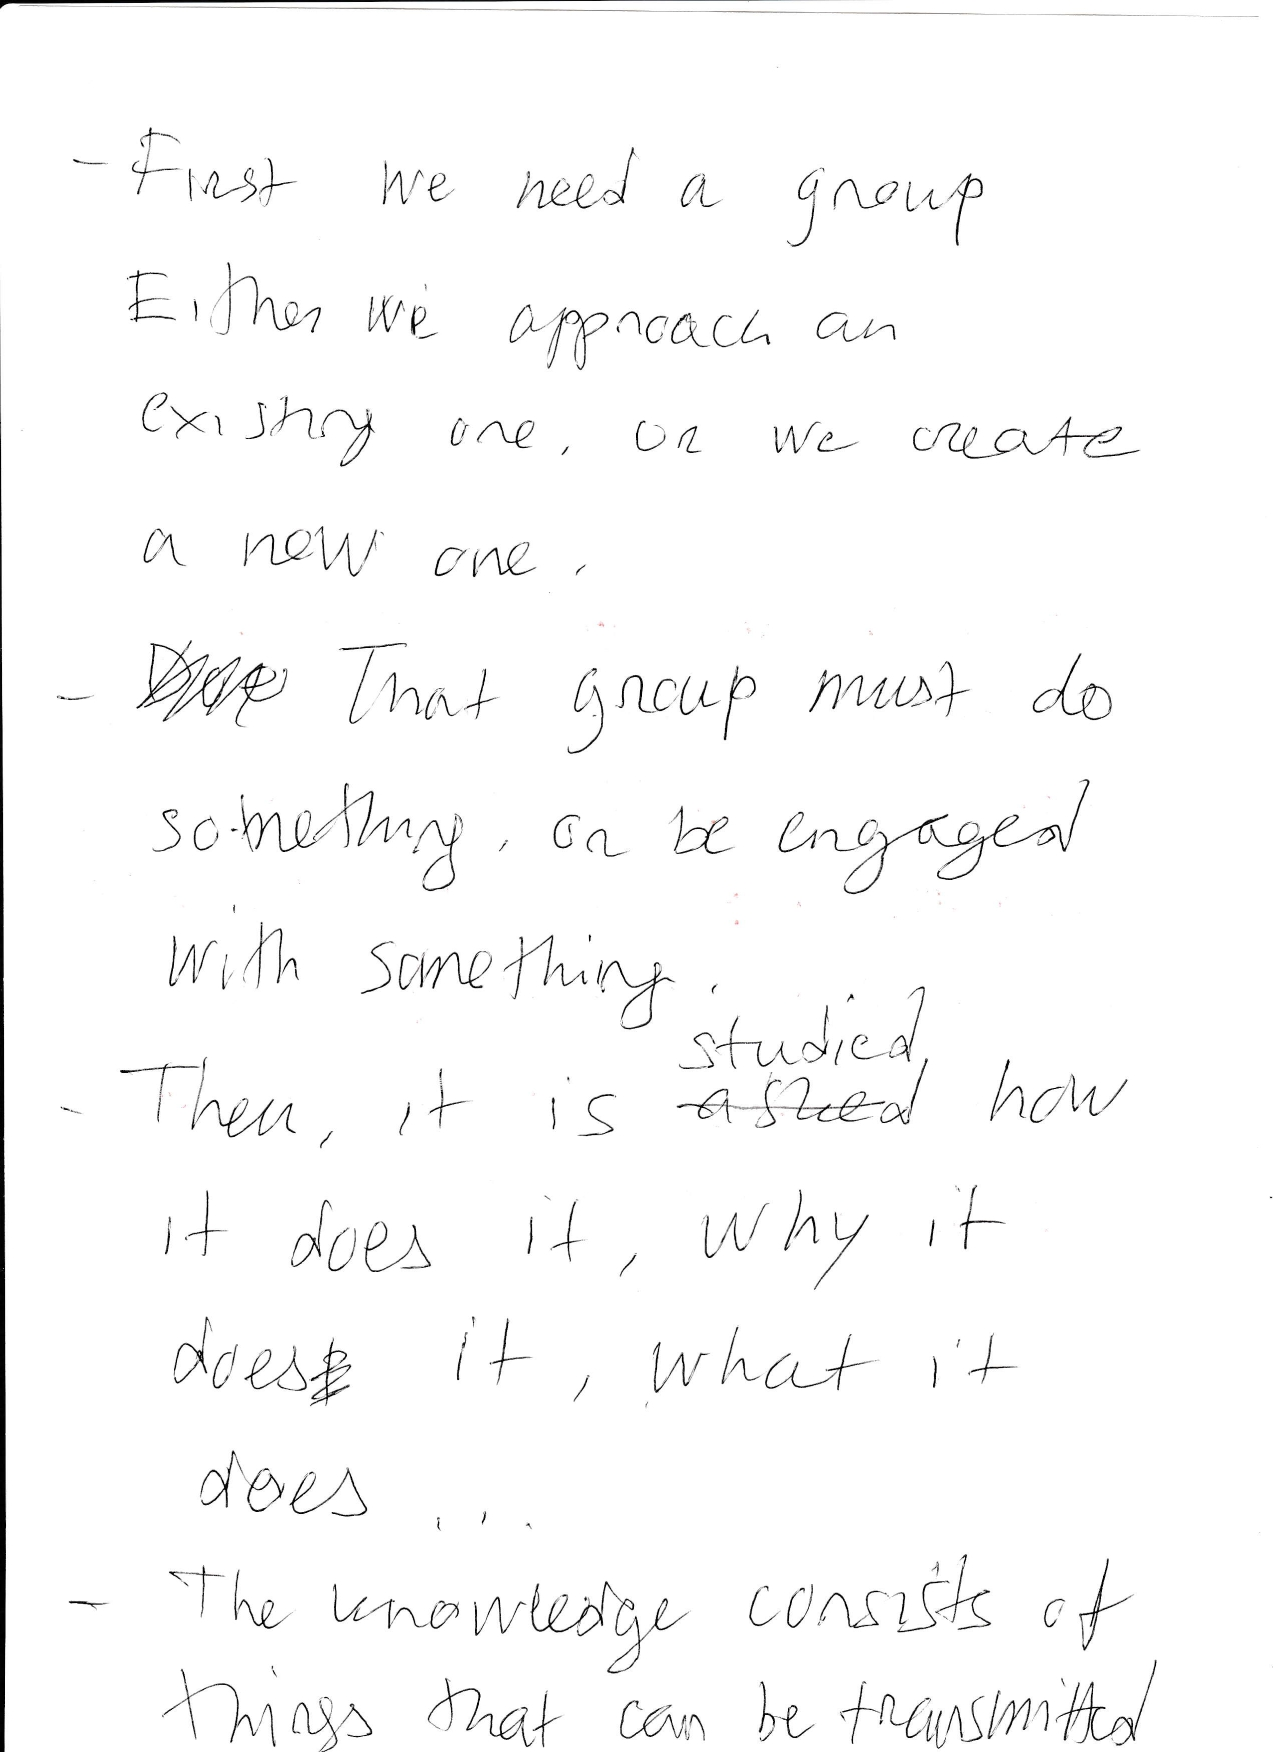 - First we need a group
Either we approach an
existing one, or we create
a new one.
- That group must do
something, or be engaged
with something.
studied
- Then, it is asked how
it does it, why it
does it, what it
does ...
- The knowledge consists of
things that can be transmitted